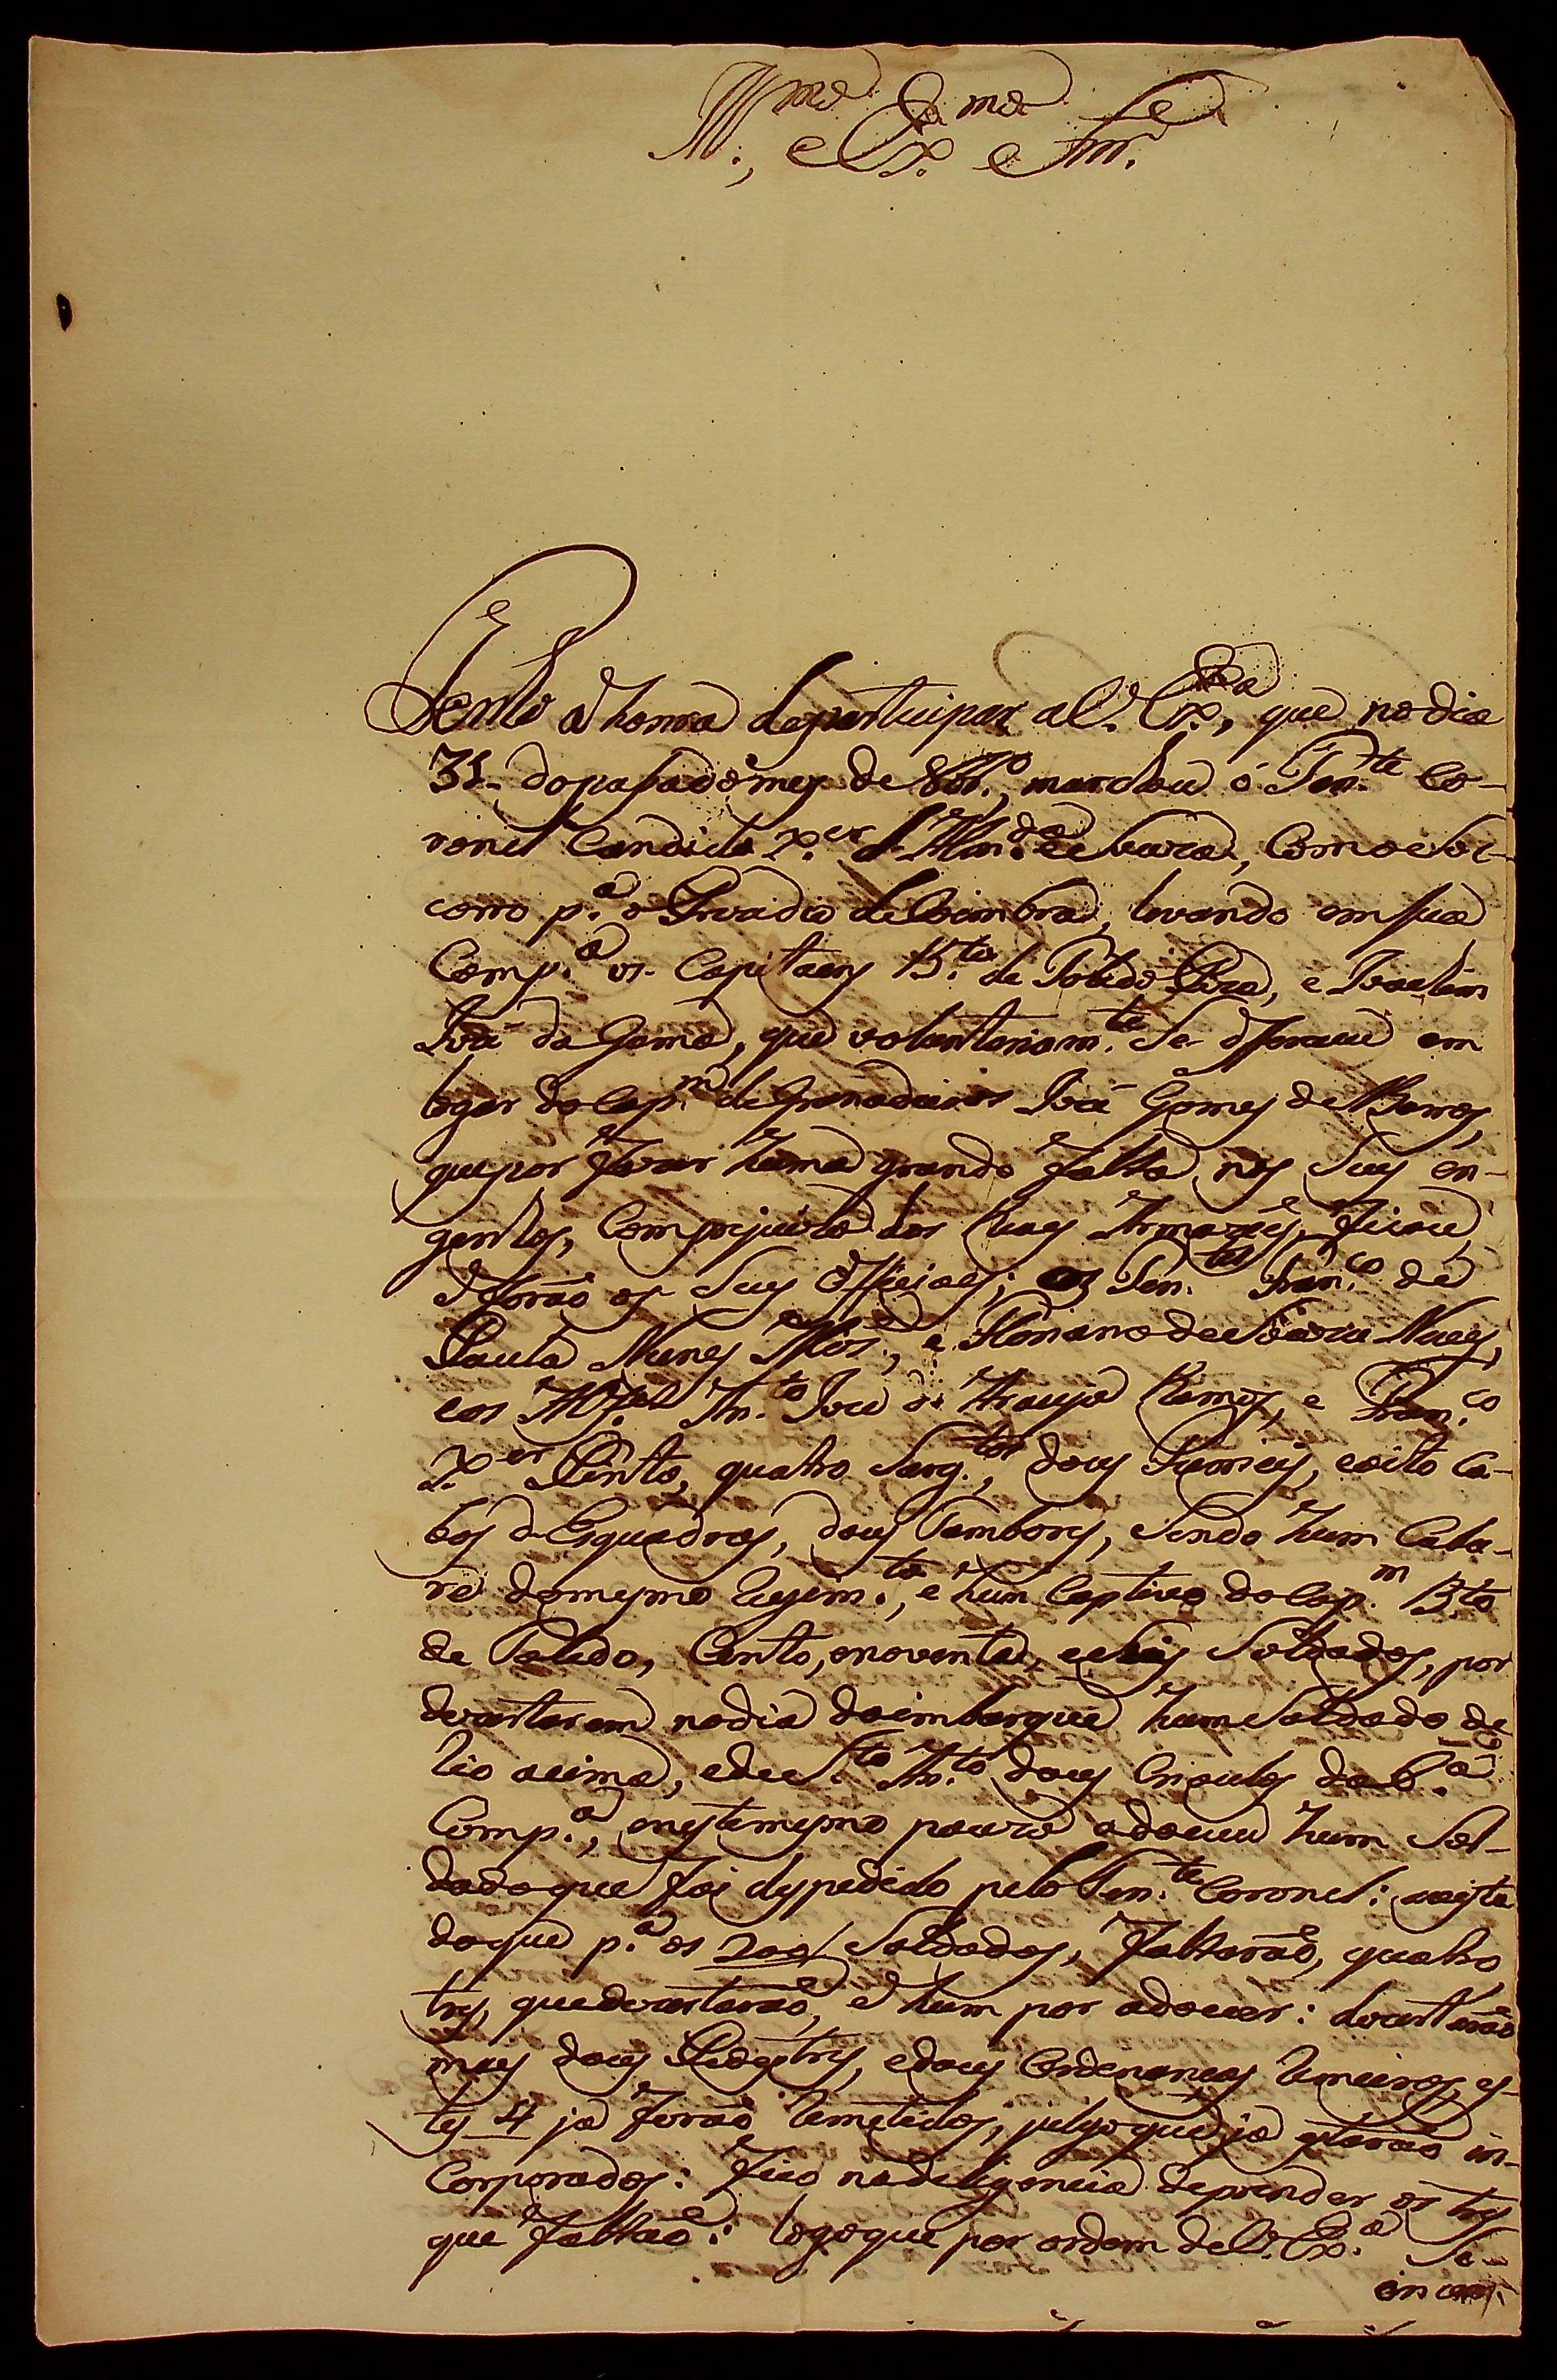 Ill.mo e Ex.mo Snr.
Tenho a honra de participar a V. Ex.a, que no dia
31. do pasado mez de 8br.o, marchou o Ten.te Co-
ronel Candido X.er d' Alm.da e Souza, Com o Soc-
corro p.a o Prezidio de Coimbra, levando em sua
Comp.a os Capitaens B.to de Toledo Piza, e Joaquim
Joze da Gama, que voluntariam.te Se offereceu em
logar do Cap.m de Granadeiros Joze Gomes de Barros,
que por fazer huma grande falta nos Seus en-
genhos, Com prejuizo dos Reaes Armazes, ficou,
e forão os Seus Officiaes; os Ten.tes Fran.co de
Paula Nunes, e Floriano de Nunes,
e os Alf.es An.to Joze d' Araujo Ramos, e Fran.co
X.er Pinto, quatro Sarg.tos, dous Furrieis, e oito Ca-
bos d' Esquadras, dous Tambores, Sendo hum Caba-
re do mesmo Regim.to, e hum Captivo do Cap.m B.to
de Toledo, Cento, e noventa, e Seis Soldados, por
dezertarem no dia do imbarque hum Soldado de
Rio acima, e de S.to An.to dous Crioulos da 6.a
Comp.a, e neste mesmo pouzo adoeceu hum Sol-
dado que foi despedido pelo Ten.te Coronel: visto
do que p.a os 200 Soldados, Faltarão, quatro
tres, que dezertarão, e hum por adoecer: dezertarão
mais dous Pedestres, e dous Ordenanças Remeiros, es-
tes 4 já forão Remetidos, julgo que já estarão in-
Corporados: Fico na deligencia de prender os tres
que Faltão: logo que por ordem de V. Ex.a Se